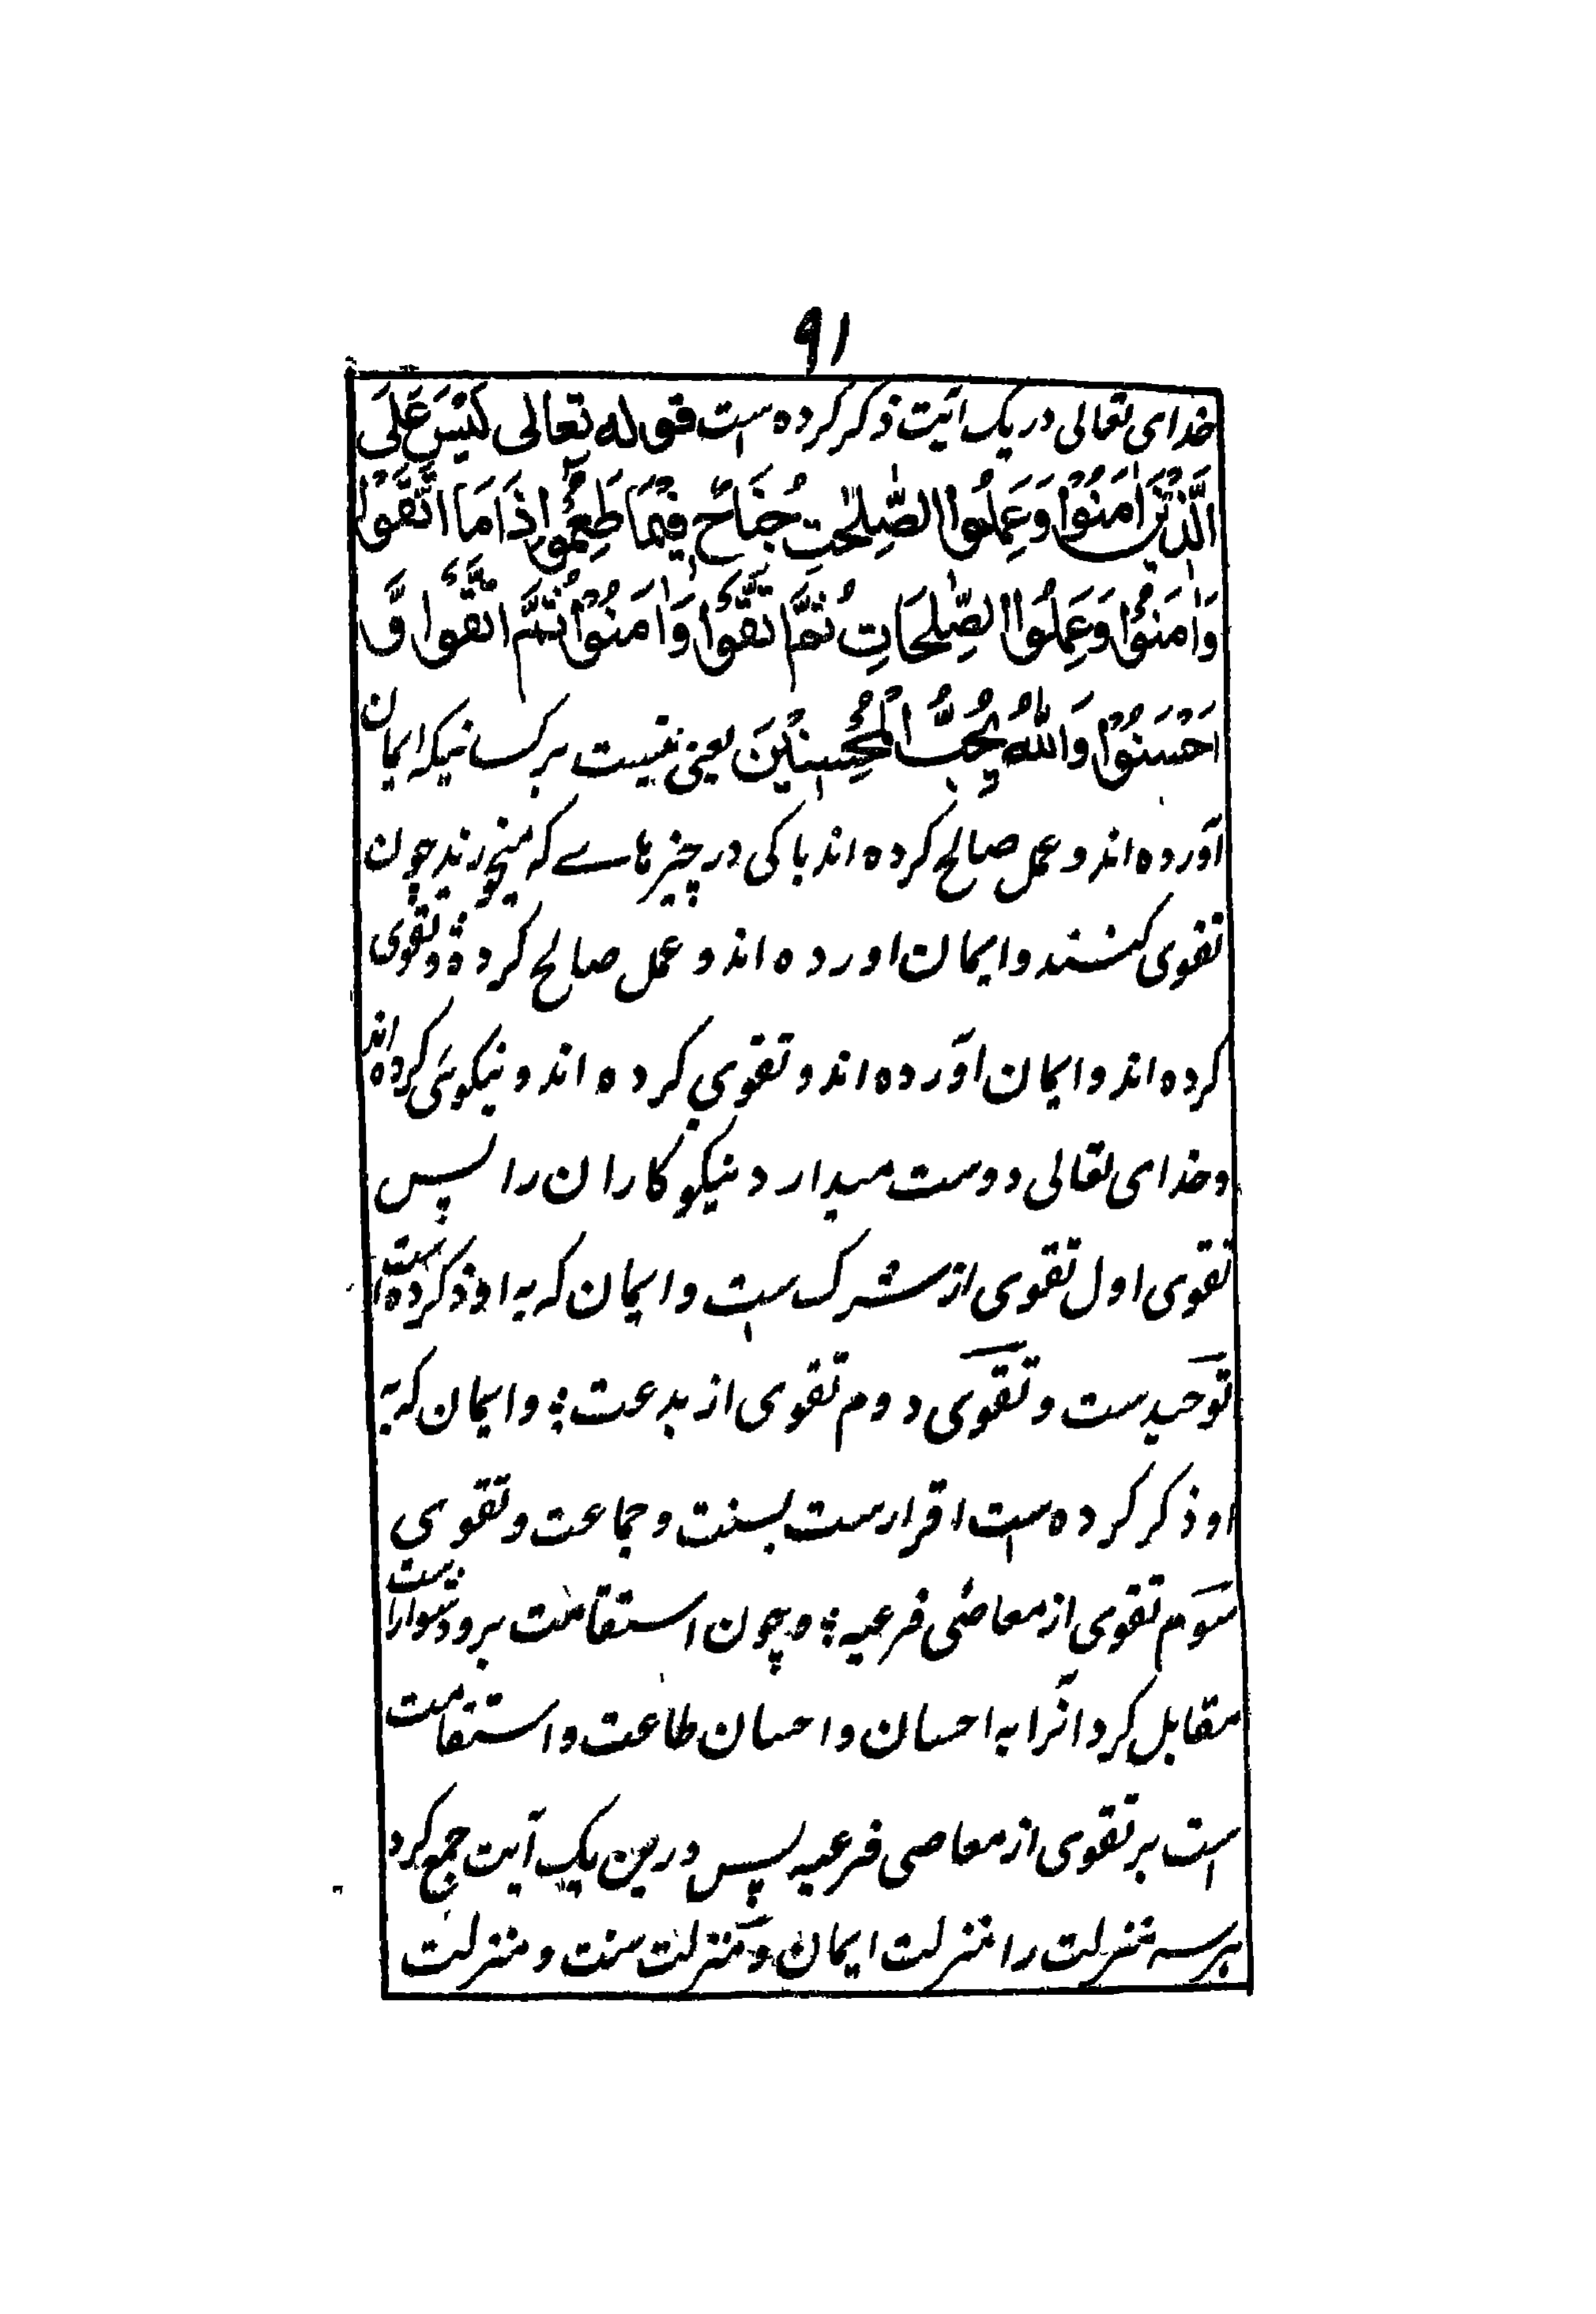 ۹۱
خدای تعالی در یک آیت ذکر کرده است قوله تعالی لَیْسَ عَلَی
الَّذِیْنَ اٰمَنُوْا وَعَمِلُوا الصّٰلِحٰتِ جُنَاحٌ فِیْمَا طَعِمُوْا اِذَا مَا اتَّقَوْا
وَاٰمَنُوْا وَعَمِلُوا الصّٰلِحَاتِ ثُمَّ اتَّقَوْا وَاٰمَنُوْا ثُمَّ اتَّقَوْا وَّ
اَحْسَنُوْا وَاللّٰهُ یُحِبُّ الْمُحْسِنِیْنَ یعنی نیست بر کسانیکه ایمان
آورده اند و عمل صالح کرده اند باکی در چیزهاے که میخورند چون
تقوی کنند و ایمان اورده اند و عمل صالح کرده و تقوی
کرده اند و ایمان آورده اند و تقوی کرده اند و نیکوئی کرده اند
و خدای تعالی دوست میدارد نیکو کاران را پس
تقوی اول تقوی از شرک است و ایمان که به او ذکر کرده است
توحیدست و تقوی دوم تقوی از بدعت؛ و ایمان که به
او ذکر کرده است اقرارست بسنت و جماعت و تقوی
سوم تقوی از معاصی فرعیه؛ و چون استقامت برو دشوارست
مقابل کرد آنرا به احسان و احسان طاعت و استقامت
است بر تقوی از معاصی فرعیه پس درین یک آیت جمع کرد
هر سه منزلت را منزلت ایمان و منزلت سنت و منزلت